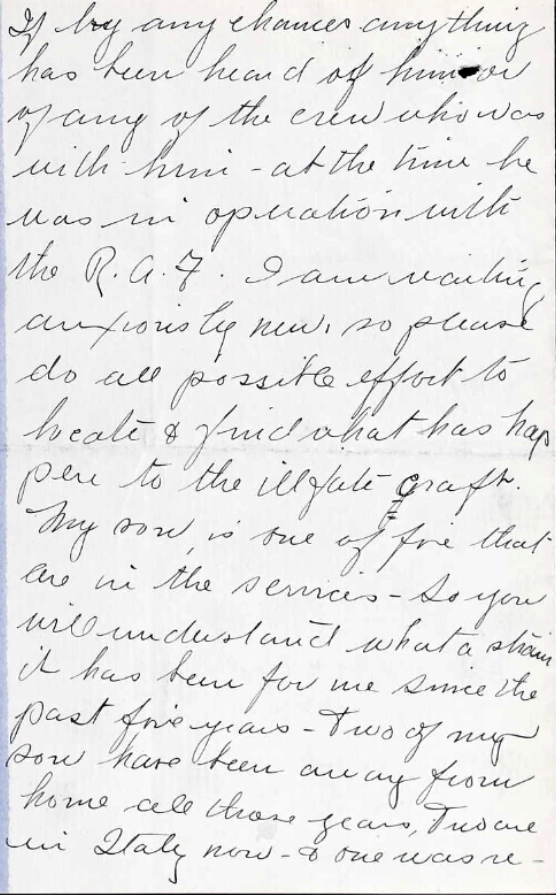 If by any chances anything
has been heard of him or
of any of the crew who was
with him - at the time he
was in operation with
the R.A.F. I am waiting
anxiously new, so please
do all possible effort to
locate & find what has hap
pen to the illfate craft.
My son, is one of five that
are in the services - So you
will understand what a strain
it has been for me since the
past five years - Two of my
son have been away from
home all those years, Two are
in Italy now - & one was re-